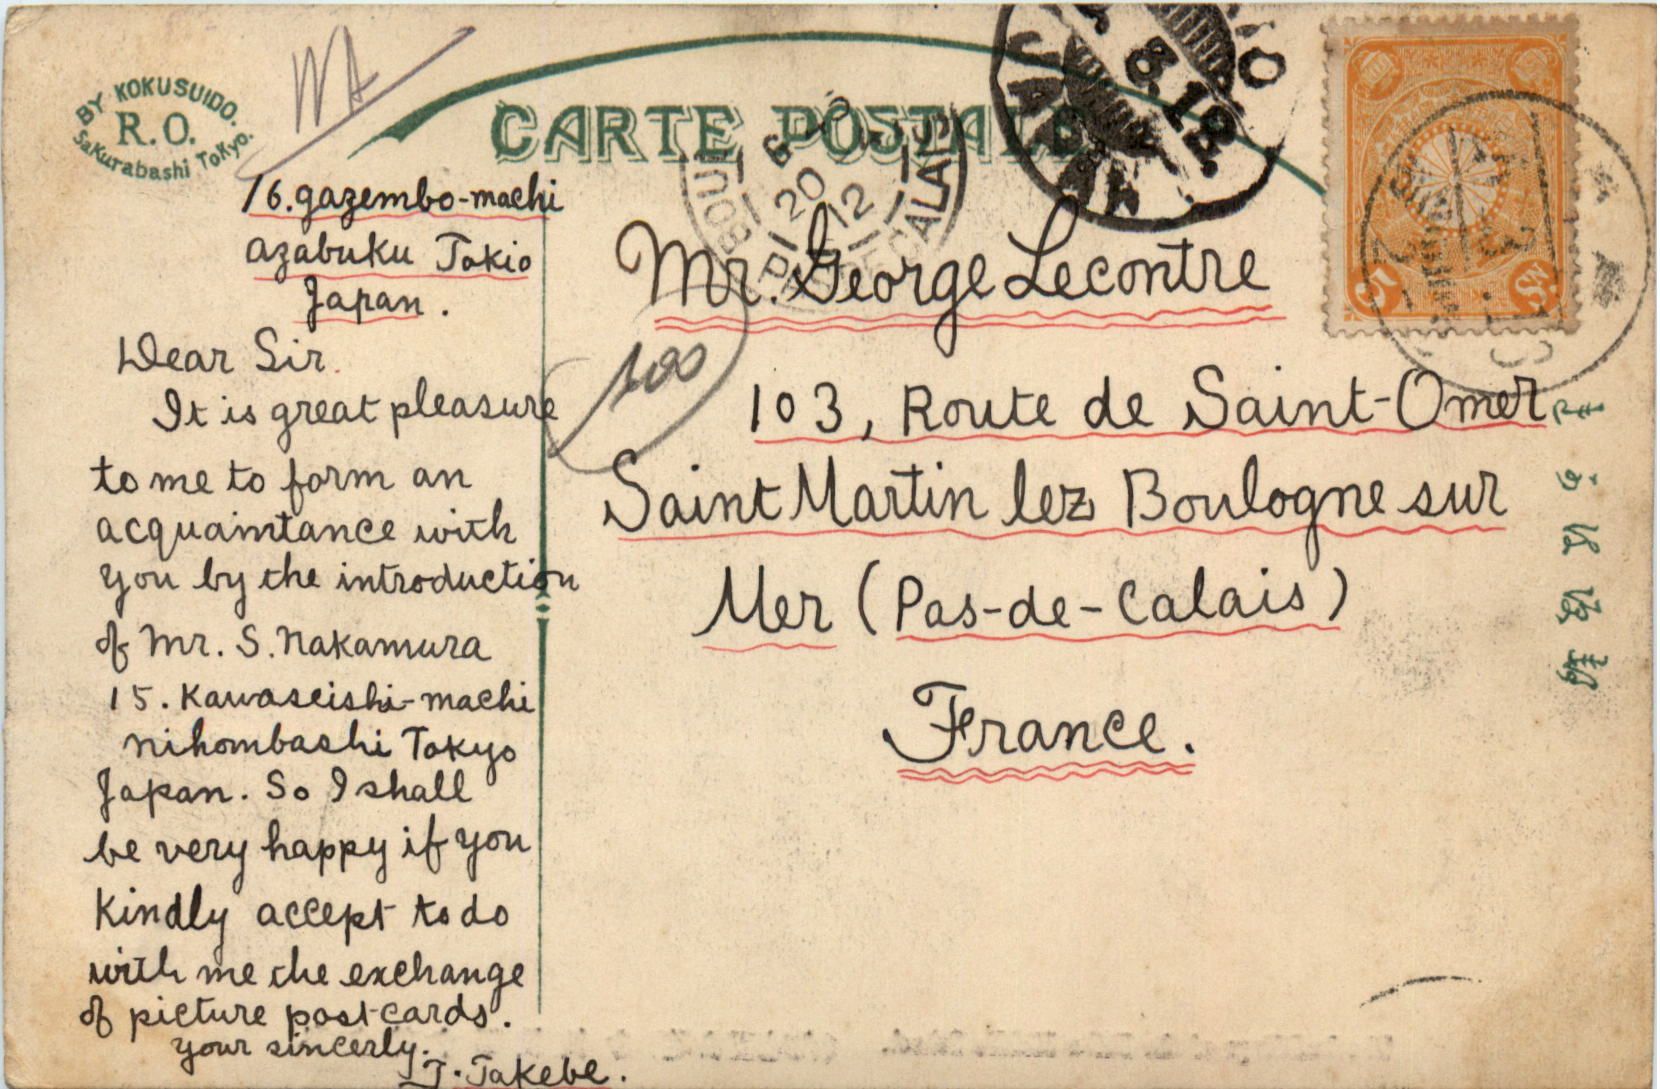 BY KOKUSUIDO.
R.O.
Sakurabashi Tokyo.
CARTE POSTALE
16. gazembo-machi
azabuku Tokio
Japan.
Dear Sir.
It is great pleasure
to me to form an
acquaintance with
you by the introduction
of Mr. S. Nakamura
15. Kawaseishi-machi
nihombashi Tokyo
Japan. So I shall
be very happy if you
Kindly accept to do
with me the exchange
of picture post-cards.
your sincerly.
T. Takebe.
Mr. George Lecontre
103, Route de Saint-Omer
Saint Martin lez Boulogne sur
Mer (Pas-de-Calais)
France.
JAPAN
20
12
CALAIS